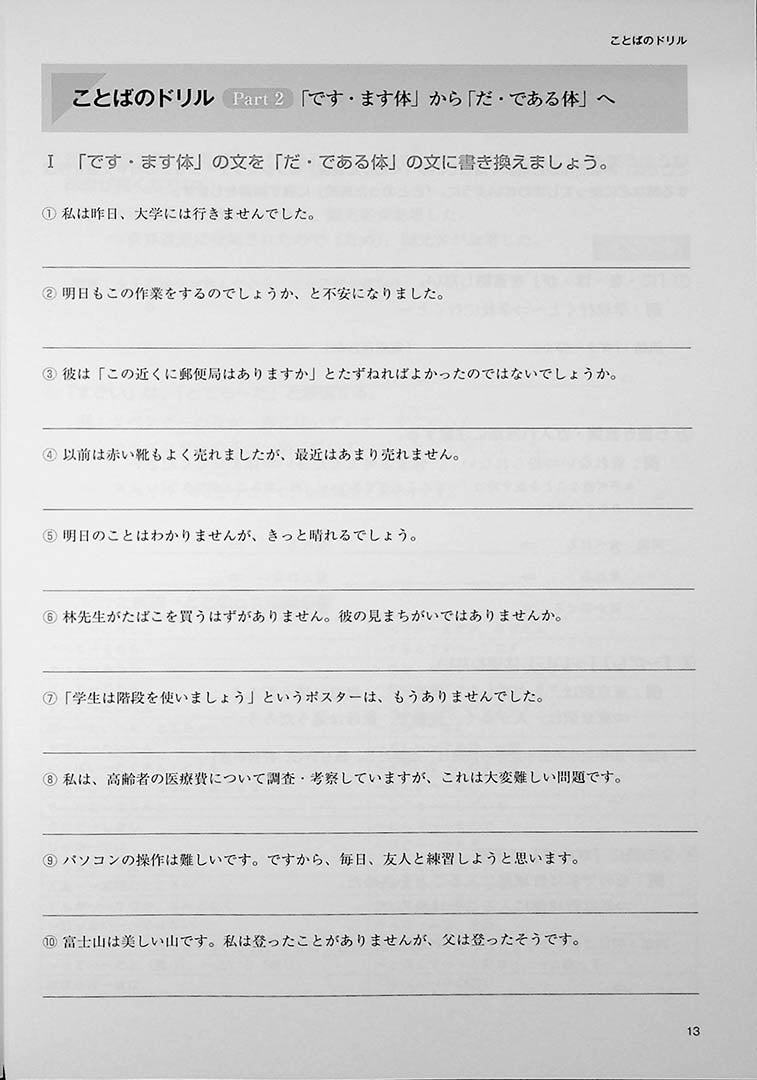 ことばのドリル
ことばのドリル Part 2 「です・ます体」から「だ・である体」へ
Ⅰ 「です・ます体」の文を「だ・である体」の文に書き換えましょう。
① 私は昨日、大学には行きませんでした。
② 明日もこの作業をするのでしょうか、と不安になりました。
③ 彼は「この近くに郵便局はありますか」とたずねればよかったのではないでしょうか。
④ 以前は赤い靴もよく売れましたが、最近はあまり売れません。
⑤ 明日のことはわかりませんが、きっと晴れるでしょう。
⑥ 林先生がたばこを買うはずがありません。彼の見まちがいではありませんか。
⑦ 「学生は階段を使いましょう」というポスターは、もうありませんでした。
⑧ 私は、高齢者の医療費について調査・考察していますが、これは大変難しい問題です。
⑨ パソコンの操作は難しいです。ですから、毎日、友人と練習しようと思います。
⑩ 富士山は美しい山です。私は登ったことがありませんが、父は登ったそうです。
13